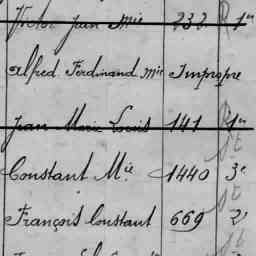 Victor Jean Mie 232 1er
Alfred Ferdinand Mie Impropre
Jean Marie Louis 141 1er
Constant Mie 1440 3e
François Constant 669 2e